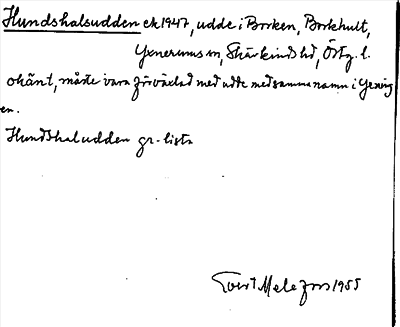 Hundshalsudden ek 1947, udde i Borken, Borkhult,
Yxnerums sn, Skärkinds hd, Östg. l.
okänt, måste vara förväxlad med udde med samma namn i Yxning
en.
Hundshaludden gr-lista
1955